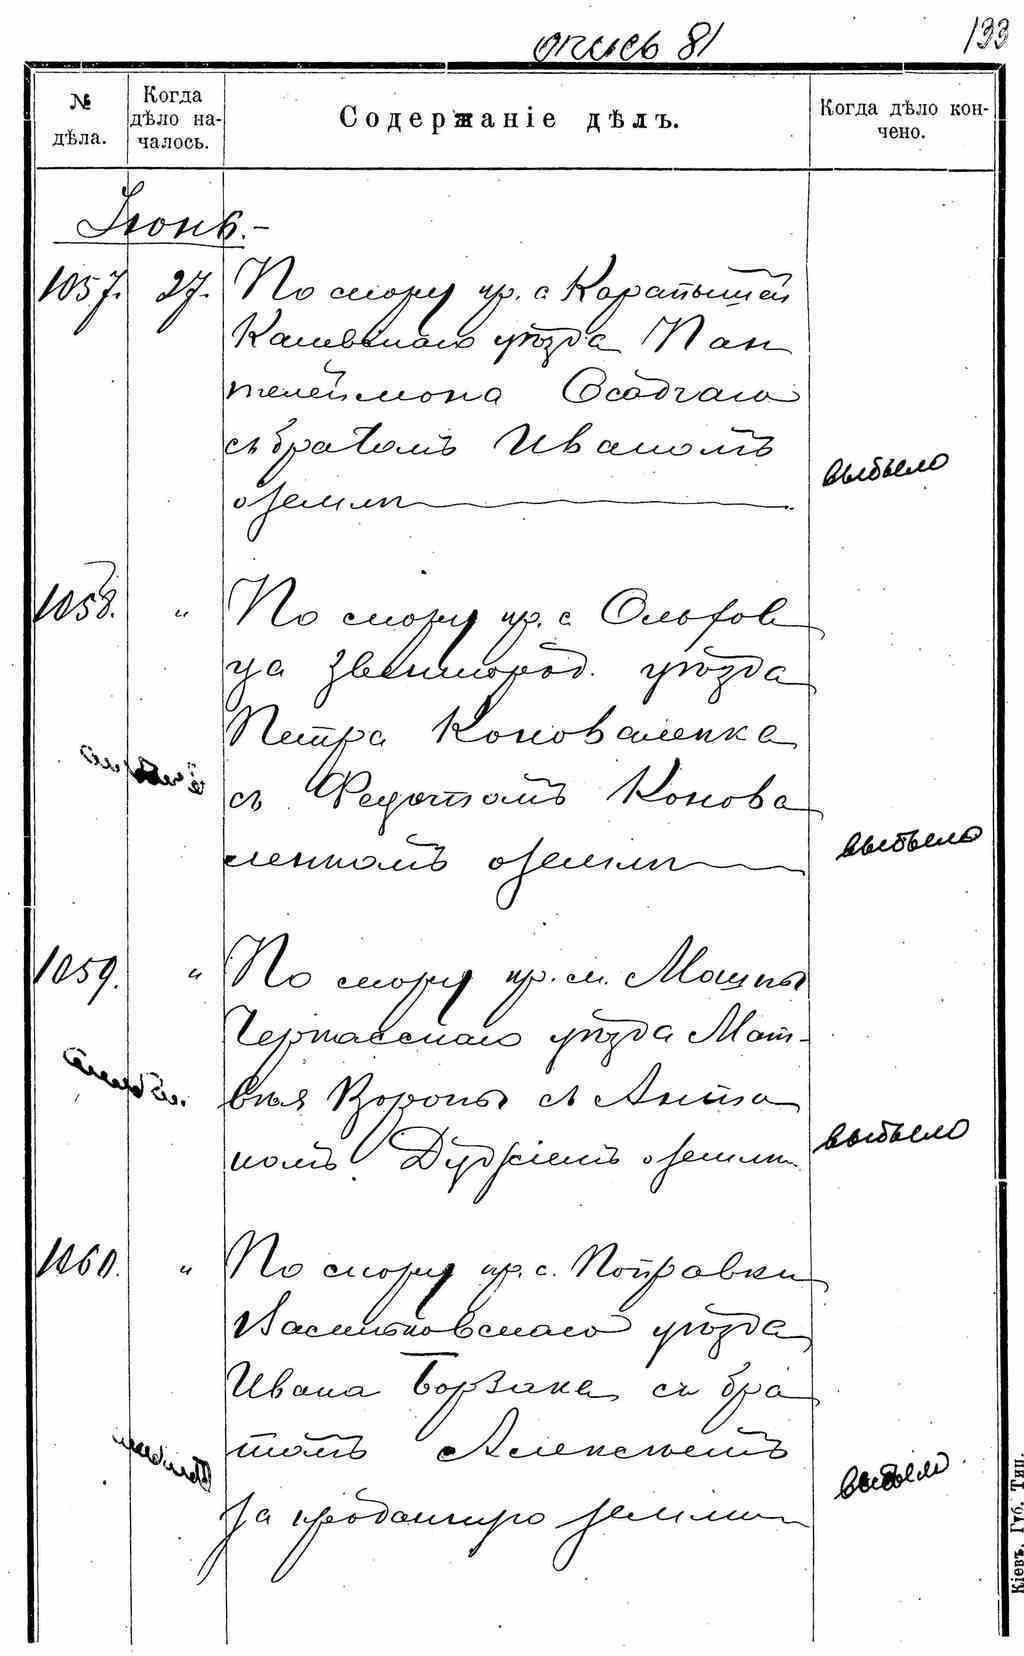 опись 81
133
№ дѣла.
Когда дѣло на-
чалось.
Содержаніе дѣлъ.
Когда дѣло кон-
чено.
Іюнь.-
1057. 27. По спору кр. с Карапышей
Каневскаго уѣзда Пан
телеймона Осадчаго
съ братомъ Иваномъ
о землѣ
выбыло
1058. " По спору кр. с Ольхов
ца Звенигород. уѣзда
Петра Коноваленка
съ Федотомъ Конова
ленкомъ о землѣ
выбыло
1059. " По спору кр. м. Мошны
Черкасскаго уѣзда Мат-
вѣя Вороны съ Анто
номъ о землѣ
выбыло
1060. " По спору кр. с. Поправки
Васильковскаго уѣзда
Ивана Борзака съ бра
томъ Алексѣемъ
за проданную землю
выбыло
Кіевъ. Губ. Тип.